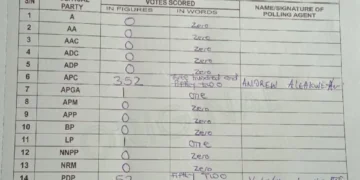 S/N PARTY VOTES SCORED NAME/SIGNATURE OF POLLING AGENT
IN FIGURES IN WORDS
1 A 0 Zero
2 AA 0 Zero
3 AAC 0 Zero
4 ADC 0 Zero
5 ADP 0 Zero
6 APC 352 Three hundred and fifty two ANDREW
7 APGA 1 One
8 APM 0 Zero
9 APP 0 Zero
10 BP 0 Zero
11 LP 1 One
12 NNPP 0 Zero
13 NRM 0 Zero
14 PDP 52 Fifty Two